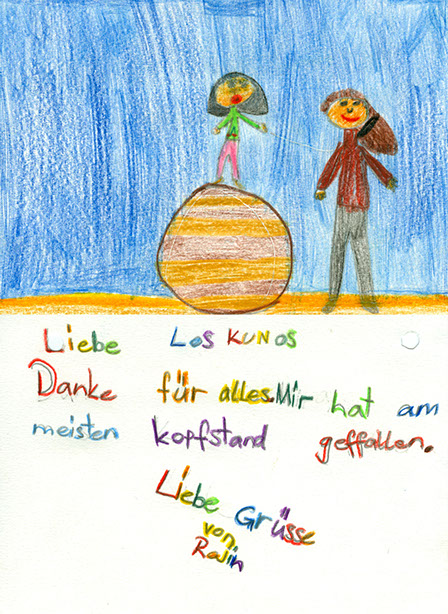 Liebe Los Kunos
Danke für alles. Mir hat am
meisten kopfstand geffallen.
Liebe Grüsse
von